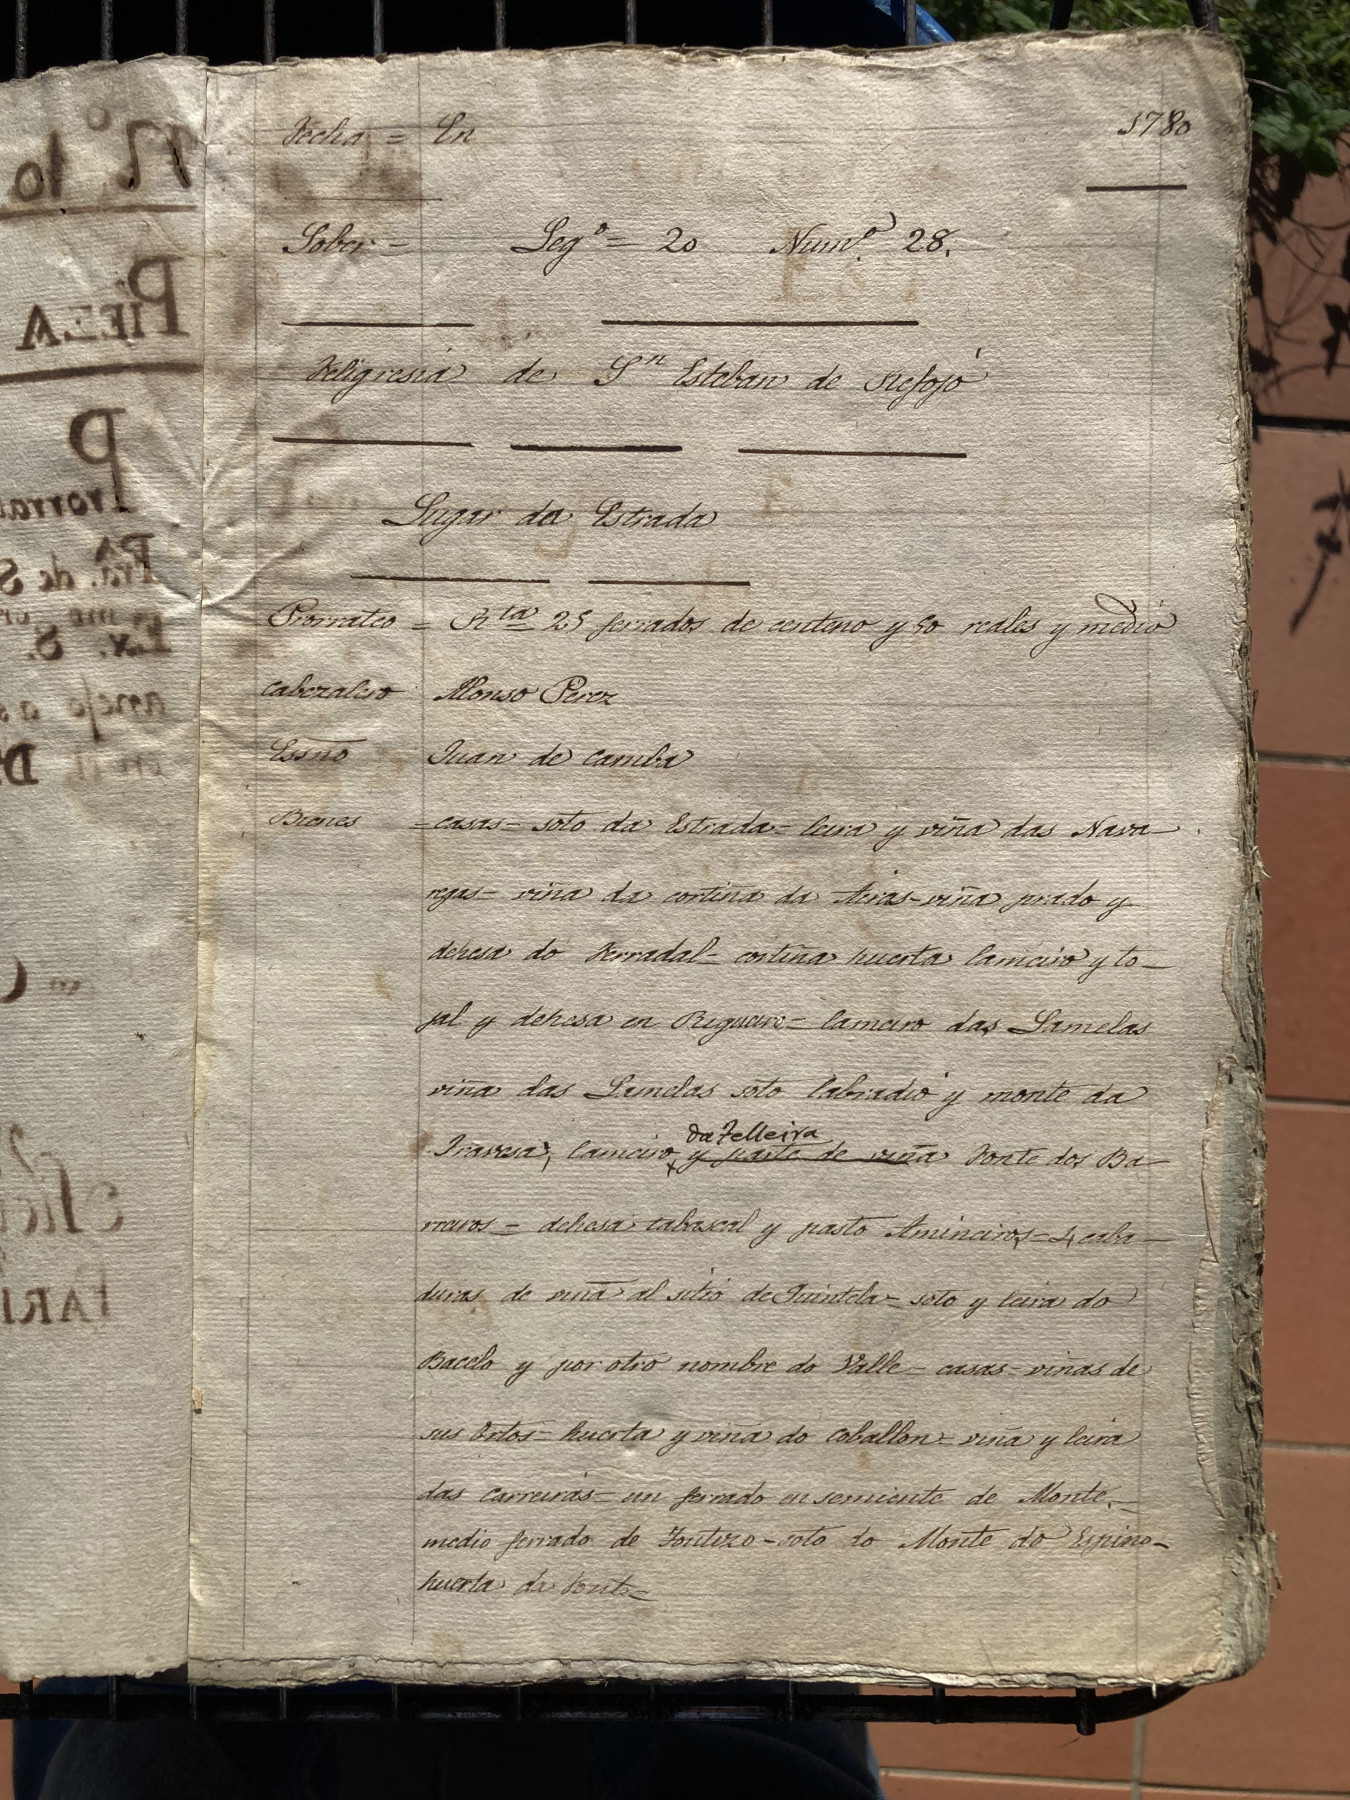 Fecha = En 1780
Sober = Leg.º = 20 Num.º 28.
Feligresia de S.n Esteban de Refojo
Lugar da Estrada
Prorrateo = R.ta 25 ferrados de centeno y 50 reales y medio
cabezalero Alonso Perez
Essño Juan de Camba
Bienes = casas = soto da Estrada = leira y viña das Nava-
regas = viña da cortiña da Airas - viña prado y
dehesa do Ferradal = cortiña huerta lameiro y to-
jal y dehesa en Rigueiro = lameiro das Lamelas
viña das Lamelas soto labradio y monte da
da Felleira
Travesa, lameiro, y parte de viña Fonte dos Ba-
rreiros = dehesa tabascal y pasto Amineiros = 4 caba-
duras de viña al sitio de Quintela = soto y leira do
Bacelo y por otro nombre do Valle = casas = viñas de
sus Ortos = huerta y viña do Coballon = viña y leira
das Carreiras = un ferrado en semiente de Monte =
medio ferrado de - soto do Monte do Espino -
huerta da Fonte =
Nº 10
PIEZA
P
Prorra
Fra. de S
Ex. S.
anejo a s
D
PAR